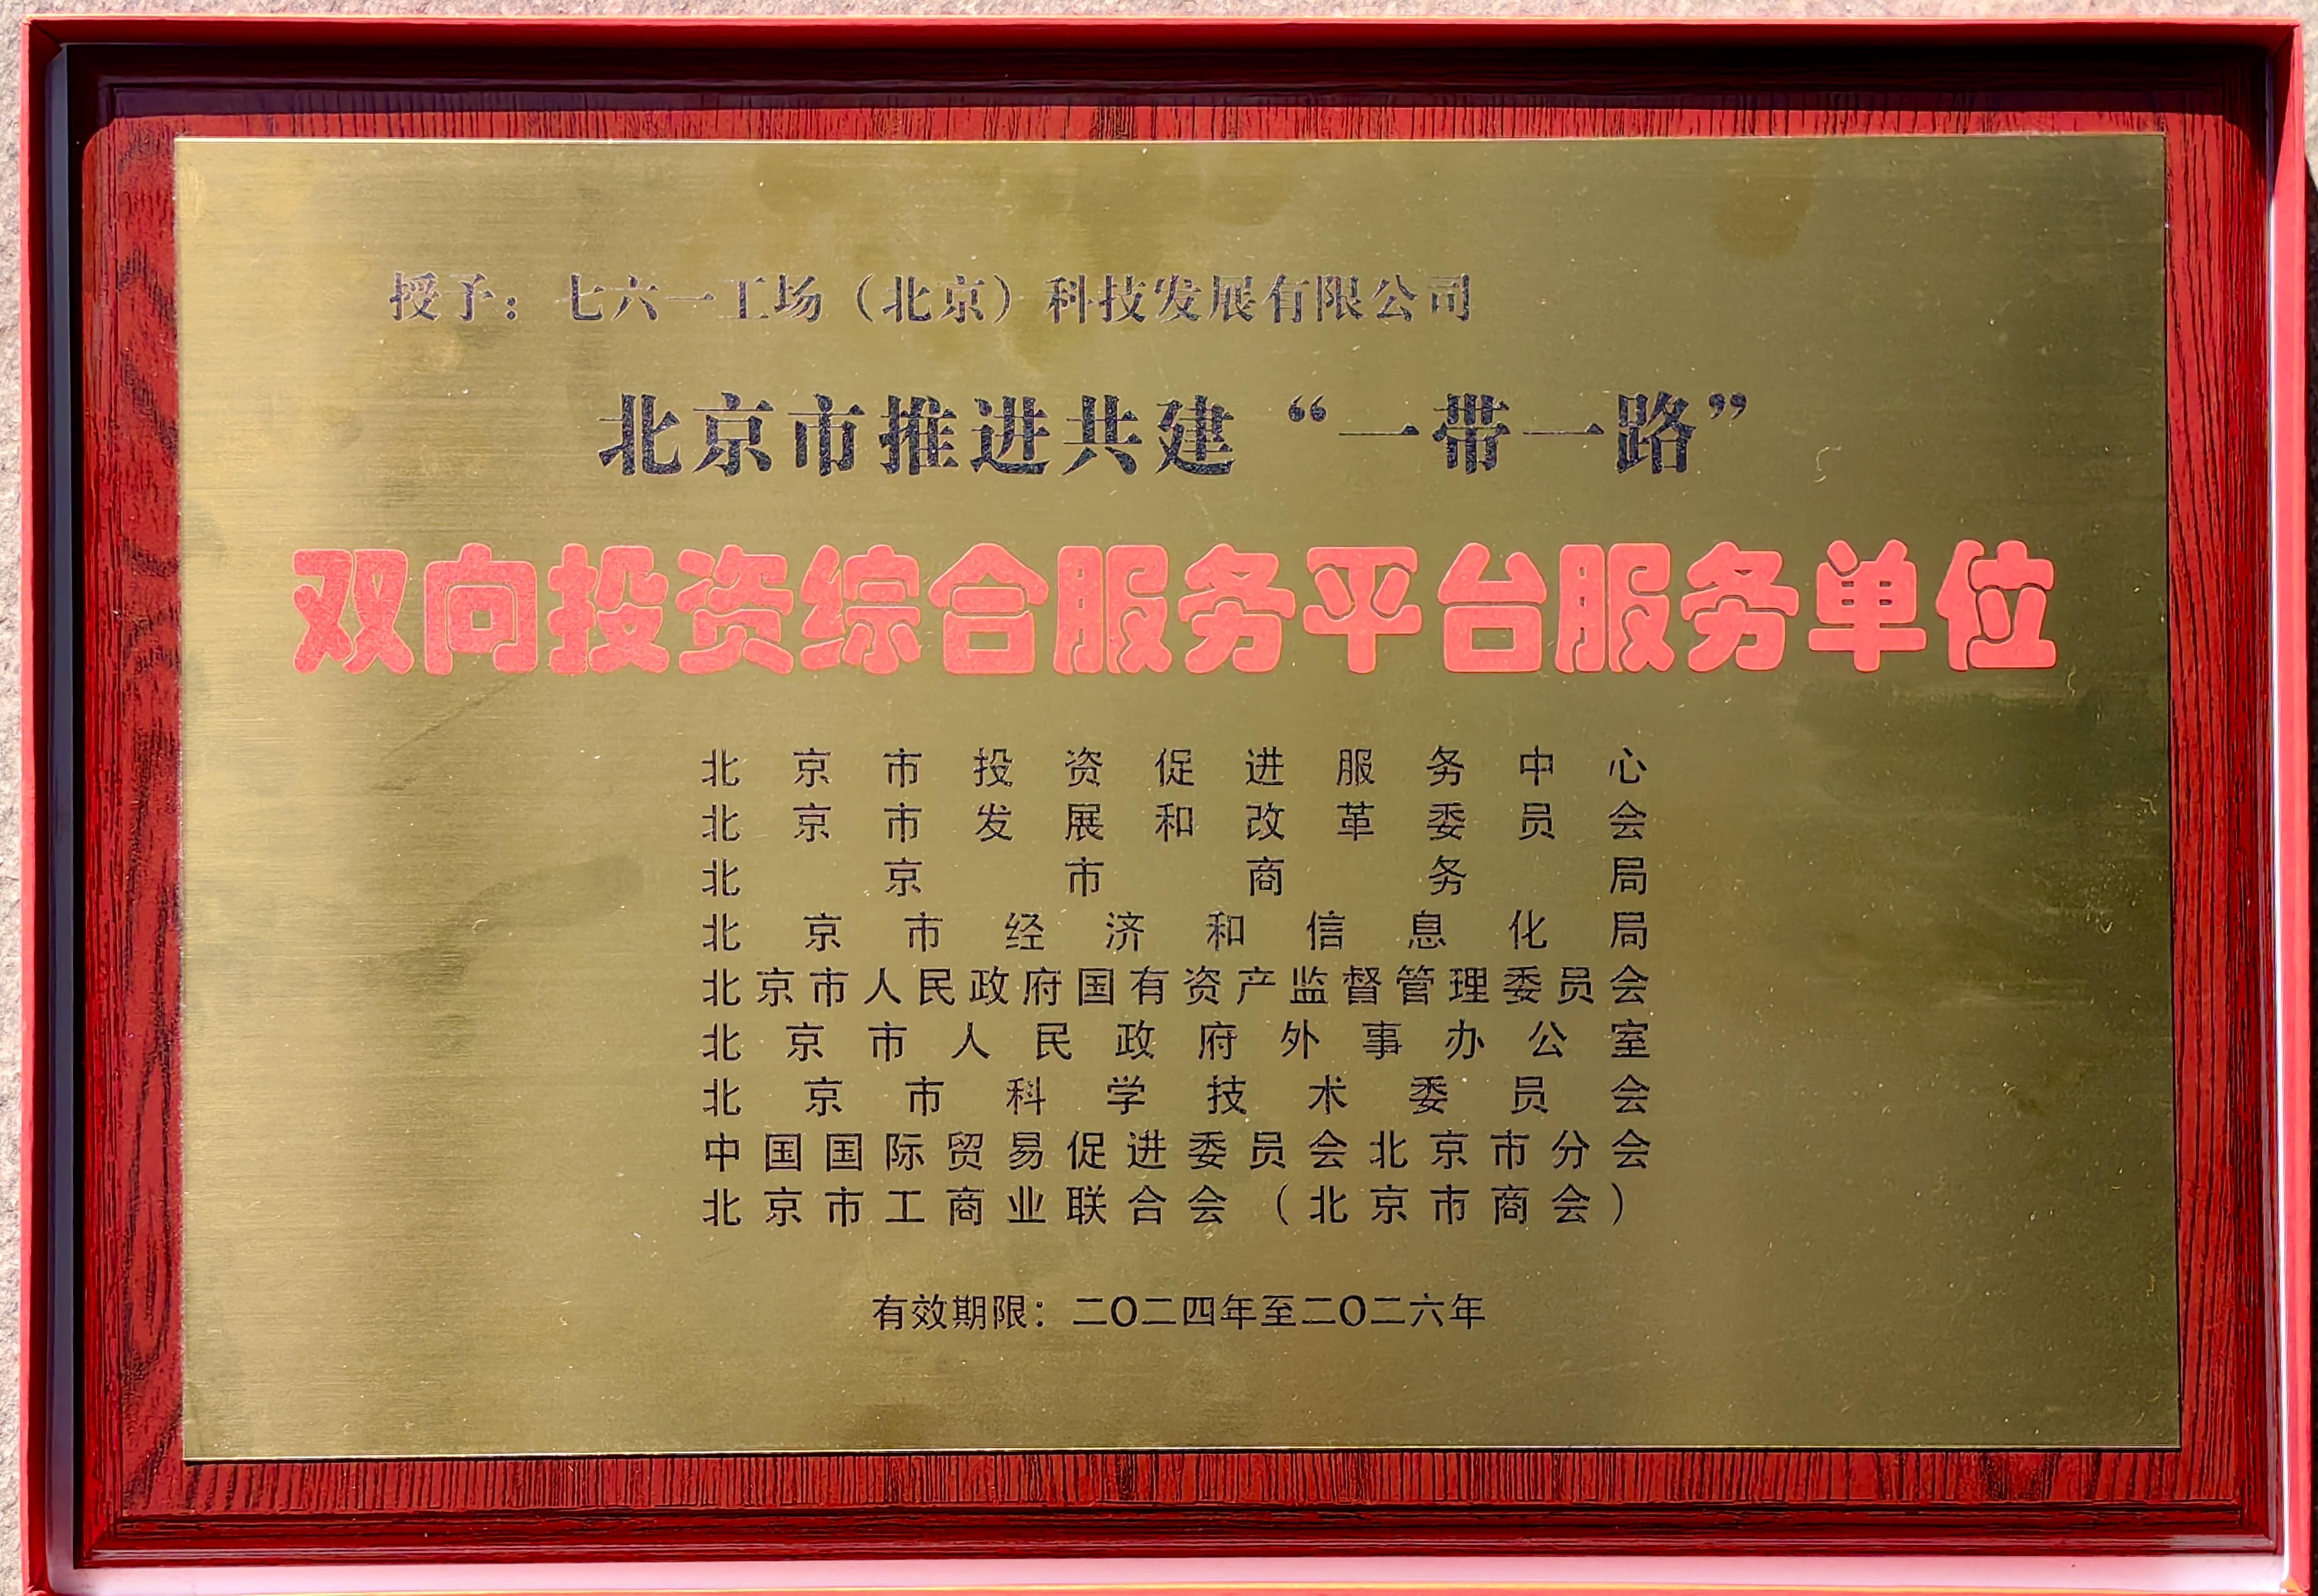 授予：七六一工场（北京）科技发展有限公司
北京市推进共建“一带一路”
双向投资综合服务平台服务单位
北京市投资促进服务中心
北京市发展和改革委员会
北京市商务局
北京市经济和信息化局
北京市人民政府国有资产监督管理委员会
北京市人民政府外事办公室
北京市科学技术委员会
中国国际贸易促进委员会北京市分会
北京市工商业联合会（北京市商会）
有效期限：二〇二四年至二〇二六年